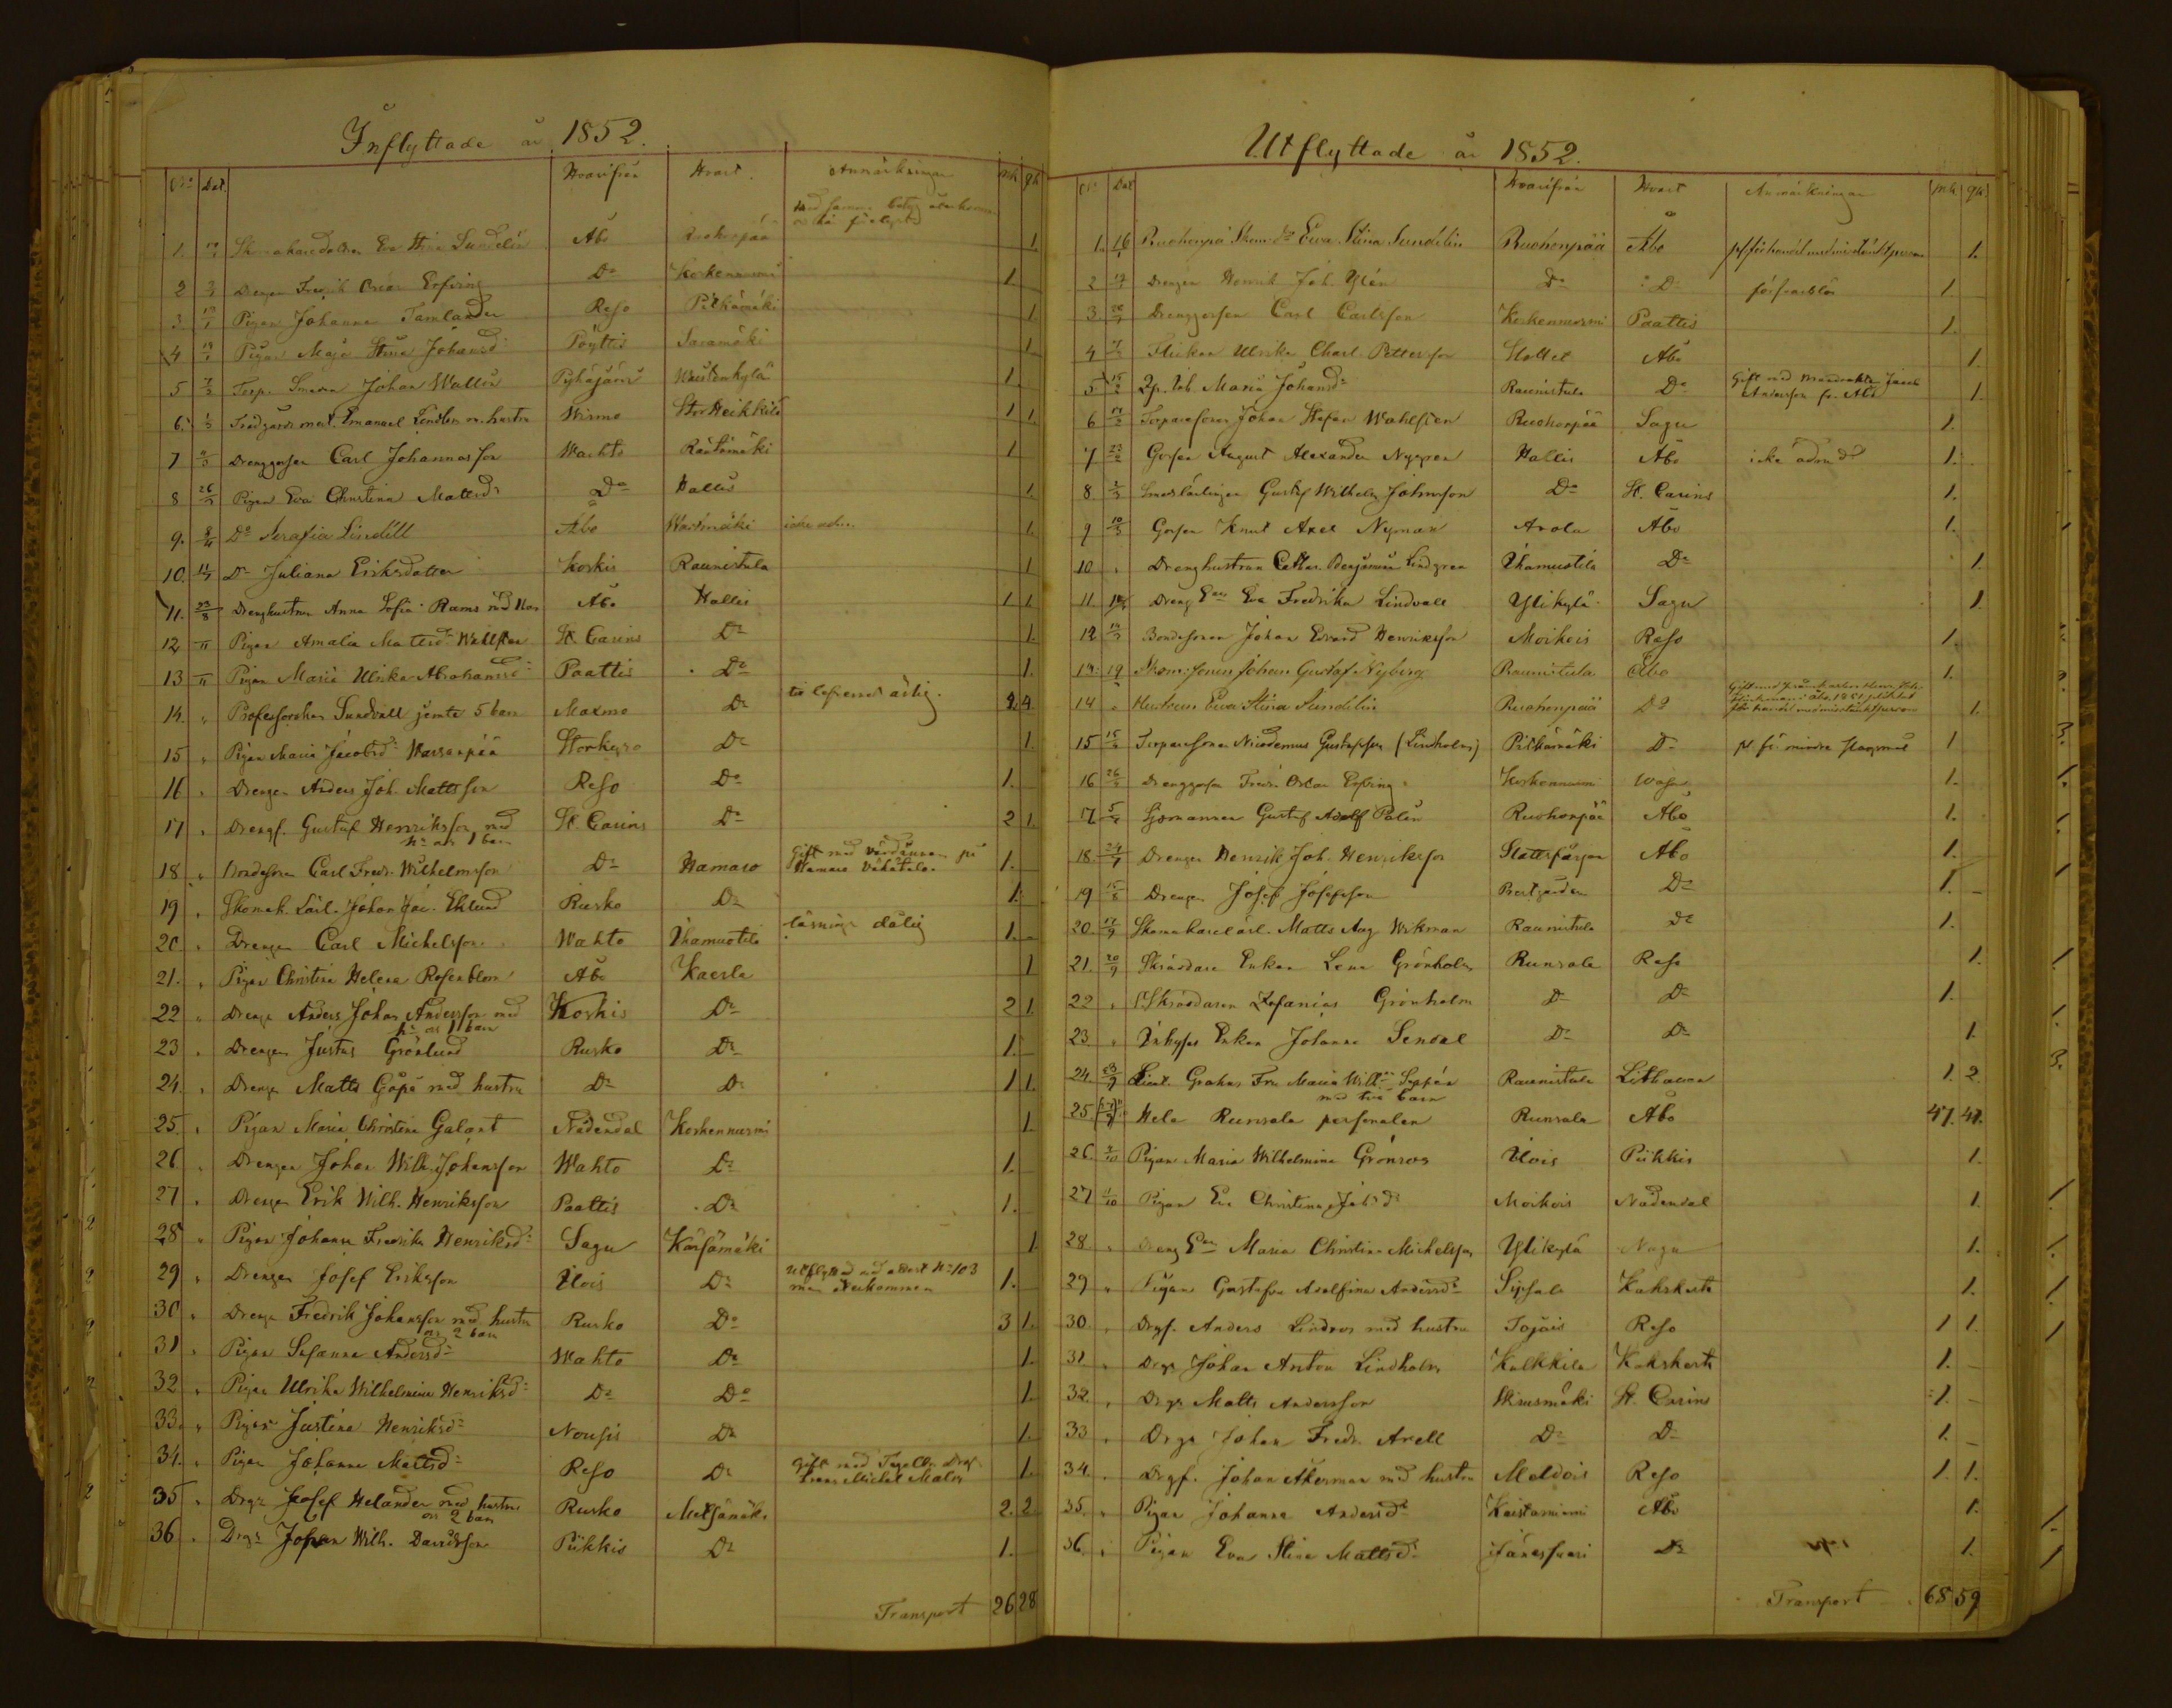 Inflyttade år 1852.
No Dat. Hvarifrån Hvart. Anmärkningar mk qk
1. Skomakaredottren Eva Stina Sundelin Åbo Ruohonpää 1.
2 Drengen Fredrik Oscar Erfving Do Koskennurmi 1.
3. Pigan Johanna Tamlander Reso Pitkämäki 1.
4 Pigan Maja Stina Johansd: Pöyttis Saramäki 1.
5 Torp. Johan Wallin Pyhäjärvi 1.
6. Trädgårdsmäst. Emanuel Lindlöf m. hustru Wirmo StorHeikkilä 1 1.
7 Drenggossen Carl Johannesson Wachto Räntämäki 1
8 26 Pigan Eva Christina Mattsd: Do Hallis 1.
9. Do Serafia Lindell Åbo 1.
10. Do Juliana Eriksdotter Koskis Raunistula 1
11. 23/8 Drenghustrun Anna Sofia Rams med 1 barn Åbo Hallis 1 1.
12 " Pigan Amalia Mattsd: St. Carins Do 1.
13 " Pigan Maria Ulrika Abrahamsd: Paattis Do 1.
14. " Professorskan Sundvall jemte 5 barn Maxmo Do 2 4
15 " Pigan Maria Jacobsd: Storkyro Do 1.
16 " Drengen Anders Joh. Mattsson Reso Do 1.
17 " Drengf. Gustaf Henriksson med St. Carins Do 2 1.
hu och 1 barn
18 " Bondesonen Carl Fredr. Wilhelmsson Do Hamaro Gift med på 1.
Hamaro
19 " Skomak. Lärl. Johan Jac. Eklund Rusko Do 1.
20 " Drengen Carl Michelsson Wahto Ihamuotila läsning dålig 1.
21. " Pigan Christina Helena Rosenblom Åbo Kaerla 1
22 " Drengen Anders Johan Andersson med Koskis Do 2 1.
hu och 1 barn
23 " Drengen Justus Grönlund Rusko Do 1.
24. " Drengen Matts Göpä med hustru Do Do 1 1.
25. " Pigan Maria Christina Galant Nådendal Koskennurmi 1.
26 " Drengen Johan Wilh. Johansson Wahto Do 1.
27 " Drengen Erik Wilh. Henriksson Paattis Do 1.
28 " Pigan Johanna Fredrika Henriksd: Sagu Kärsämäki 1.
29 " Drengen Josef Eriksson Ilois Do Utflyttad med attest No 103 1.
men återkommen
30 " Drengen Fredrik Johansson med hustru Rusko Do 3 1.
och 2 barn
31 " Pigan Susanna Andersd: Wahto Do 1.
32 " Pigan Ulrika Wilhelmina Henriksd: Do Do 1.
33. " Pigan Justina Henriksd: Nousis Do 1.
34. " Pigan Johanna Mattsd: Reso Do Gift med 1.
35 " Drgn Josef Helander med hustru Rusko Metsämäki 2. 2
och 2 barn
36 . Drgn Johan Wilh. Davidsson Piikkis Do 1.
Transport 26 28
Utflyttade år 1852.
No Dat Hvarifrån Hvart Anmärkningar mk. qk.
1. 16/1 Ruohonpä Skom. dr Eva Stina Sundelin Ruohonpää Åbo 1.
2 Drengen Henrik Joh. Ylén Do Do försvarslös 1.
3 Drenggossen Carl Carlsson Koskennurmi Paattis 1.
4 Flickan Ulrika Charl. Pettersson Slottet Åbo 1.
5 Maria Johansd: Raunistula Do Gift med 1.
Andersson fr. Åbo
6 Torparesonen Johan Stefan Wahlsten Ruohonpää Sagu 1.
7 Gossen August Alexander Nygren Hallis Åbo icke 1.
8. Smedslärlingen Gustaf Wilhelm Johnsson Do St. Carins 1.
9 10/3 Gossen Knut Axel Nyman Arola Åbo 1.
10 " Drenghustrun Benjamin Lindgren Ihamuotila Do 1.
11. Dreng Eva Fredrika Lindvall Ylikylä Sagu 1.
12 Bondesonen Johan Edvard Henriksson Moikois Reso 1.
13. 19 Skom: sonen Johan Gustaf Nyberg Raunistula Åbo 1.
14 " Hustrun Eva Stina Sundelin Ruohonpää Do 1.
15 Torparesonen Nicodemus Gustafsson (Lindholm) Pitkämäki Do för mindre slagsmål 1
16 26 Drenggossen Fredr. Oscar Erfving Koskennurmi Wasa 1.
17 Sjömannen Gustaf Adolf Palin Ruohonpää Åbo 1.
18. 24 Drengen Henrik Joh. Henriksson Slottsfärjan Åbo 1.
19 15/8 Drengen Josef Josefsson Do 1.
20. Skomakarelärl. Matts Aug. Wikman Raunistula Do 1.
21. 20/9 Skräddare Enkan Lena Grönholm Runsala Reso 1.
22 " Skräddaren Zefanias Grönholm Do Do 1.
23 " Inhyses Enkan Johanna Sendal Do Do 1.
24 23/9 Lieut. Grahns Fru Maria Wilh:na Raunistula Lithauen 1. 2.
med två barn
25. Hela Runsala personalen Runsala Åbo 47. 47.
26 Pigan Maria Wilhelmina Grönroos Ilois Piikkis 1.
27 11/10 Pigan Eva Christina Jak:d: Moikois Nådendal 1.
28 " Dreng Maria Christina Michelsson Ylikylä Nagu 1.
29 " Pigan Gustafva Adolfina Andersd: Kakskerta 1.
30 " Drgf. Anders Lindros med hustru Tojais Reso 1 1.
31 " Drgn Johan Anton Lindholm Kalkkila Kakskerta 1.
32. " Drgn Matts Andersson St. Carins 1.
33 " Drgn Johan Fredr. Axell Do Do 1.
34. " Drgf. Johan Åkerman med hustru Moldois Reso 1. 1.
35. " Pigan Johanna Andersd: Kaistarniemi Åbo 1.
36. " Pigan Eva Stina Mattsd: Jänessaari Do 1.
Transport 68 59